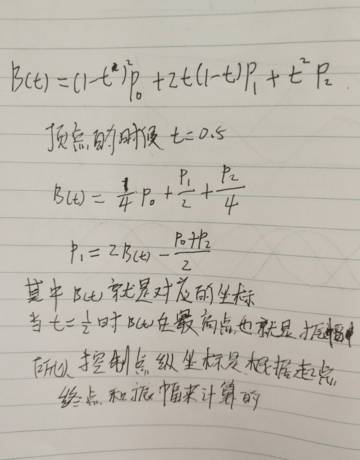 B(t) = (1-t)²P₀ + 2t(1-t)P₁ + t²P₂
顶点的时候 t=0.5
B(t) = 1/4 P₀ + P₁/2 + P₂/4
P₁ = 2B(t) - (P₀+P₂)/2
其中 B(t) 就是对应的坐标
当 t=1/2 时 B(t) 在最高点也就是振幅
所以 控制点纵坐标是根据起点,
终点和振幅来计算的